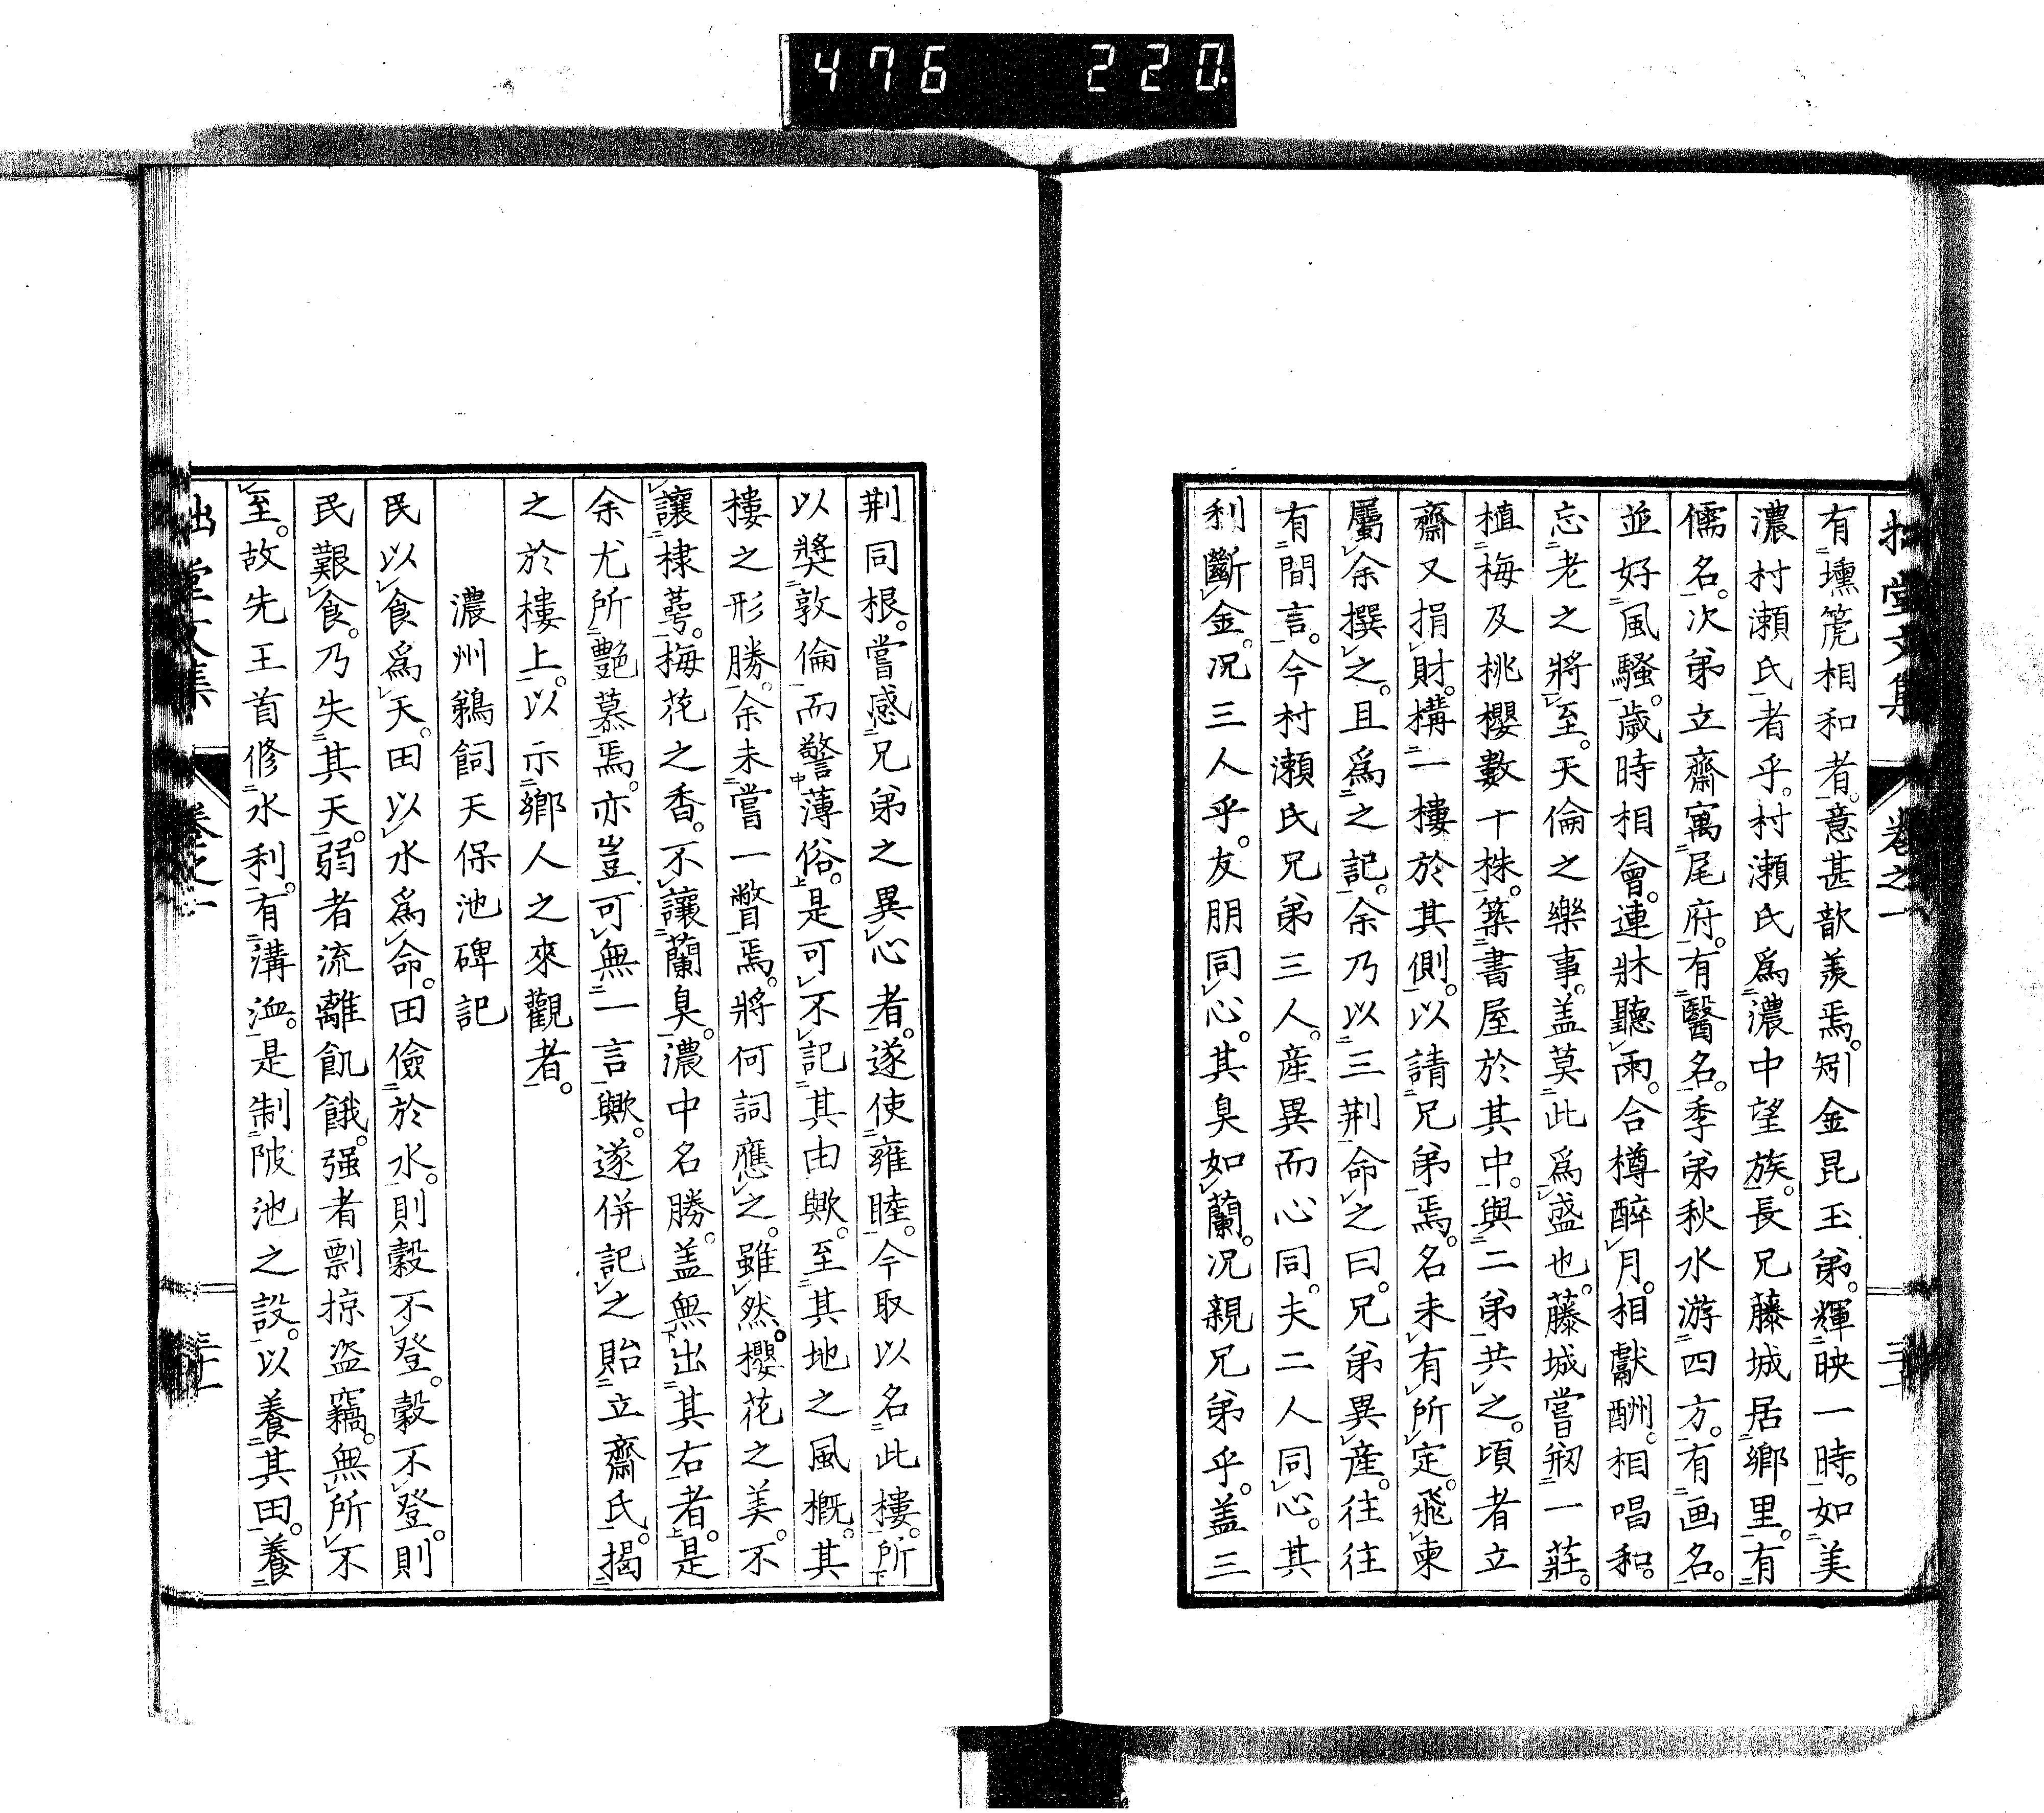 476 220.
拙堂文集 卷之一
有壎箎相和者。意甚歆羨焉。矧金昆玉弟。輝映一時。如美
濃村瀨氏者乎。村瀨氏爲濃中望族。長兄藤城居鄉里。有
儒名。次弟立齋寓尾府。有醫名。季弟秋水游四方。有画名。
並好風騷。歲時相會。連牀聽雨。合樽醉月。相獻酬。相唱和。
忘老之將至。天倫之樂事。盖莫此爲盛也。藤城嘗剏一莊。
植梅及桃櫻數十株。築書屋於其中。與二弟共之。頃者立
齋又捐財。構一樓於其側。以請兄弟焉。名未有所定。飛柬
屬余撰之。且爲之記。余乃以三荆命之曰。兄弟異產。往往
有間言。今村瀨氏兄弟三人。產異而心同。夫二人同心。其
利斷金。况三人乎。友朋同心。其臭如蘭。况親兄弟乎。盖三
荆同根。嘗感兄弟之異心者。遂使雍睦。今取以名此樓。所
以奬敦倫而警薄俗。是可不記其由歟。至其地之風概。其
樓之形勝。余未嘗一瞥焉。將何詞應之。雖然。櫻花之美。不
讓棣萼。梅花之香。不讓蘭臭。濃中名勝。盖無出其右者。是
余尤所艷慕焉。亦豈可無一言歟。遂併記之貽立齋氏。揭
之於樓上。以示鄉人之來觀者。
濃州鵜飼天保池碑記
民以食爲天。田以水爲命。田儉於水。則穀不登。穀不登。則
民艱食。乃失其天。弱者流離飢餓。强者剽掠盜竊。無所不
至。故先王首修水利。有溝洫。是制陂池之設。以養其田。養
堂文集 卷之一